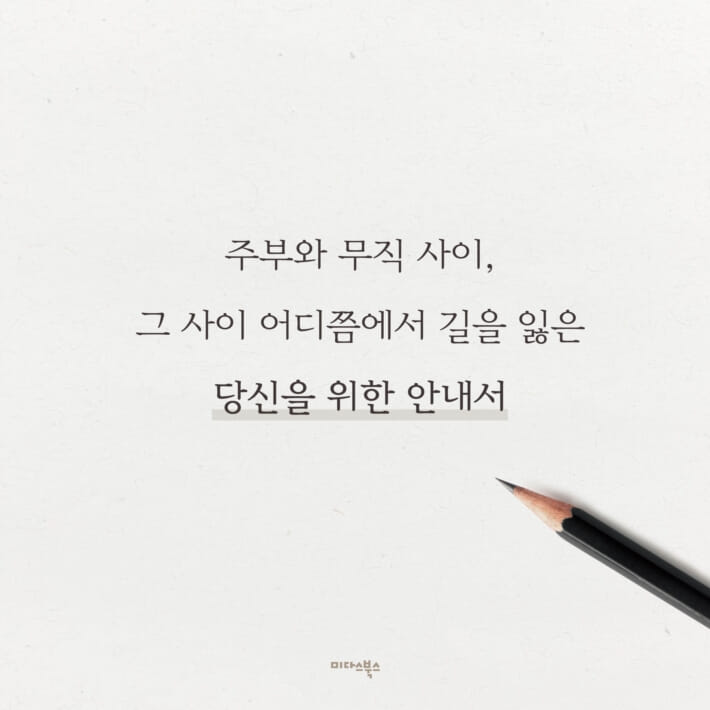 주부와 무직 사이,
그 사이 어디쯤에서 길을 잃은
당신을 위한 안내서
미다스북스